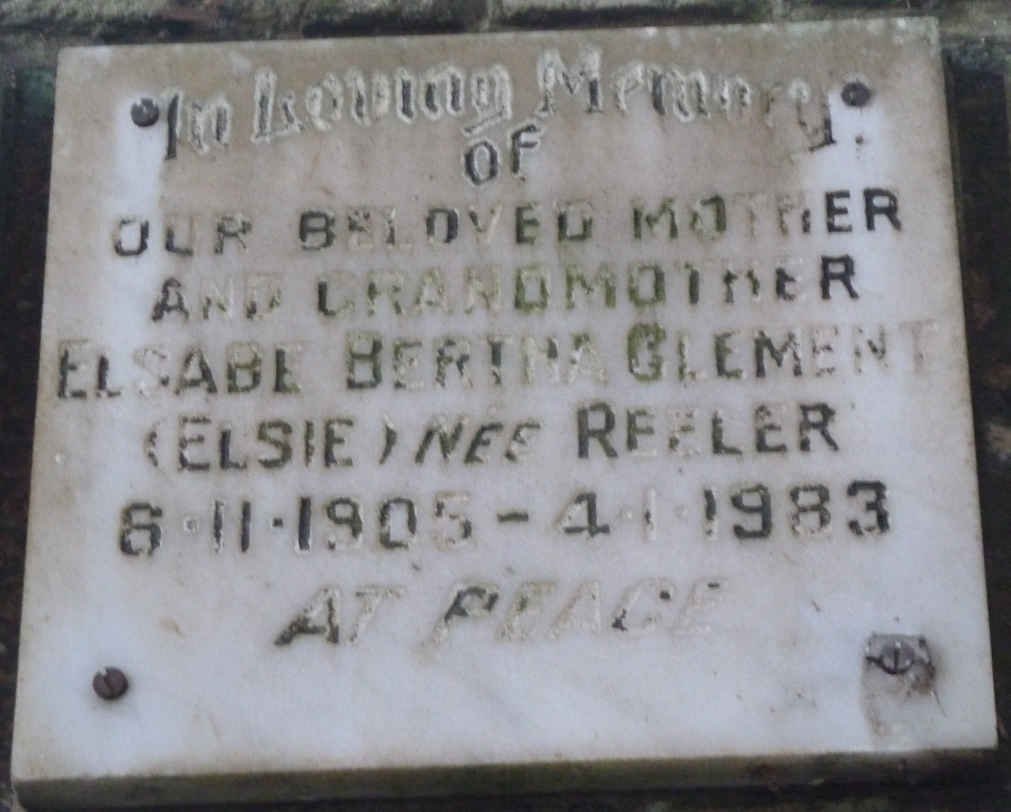 In Loving Memory
OF
OUR BELOVED MOTHER
AND GRANDMOTHER
ELSABE BERTHA CLEMENT
(ELSIE) NÉE REELER
6·11·1905 - 4·1·1983
AT PEACE